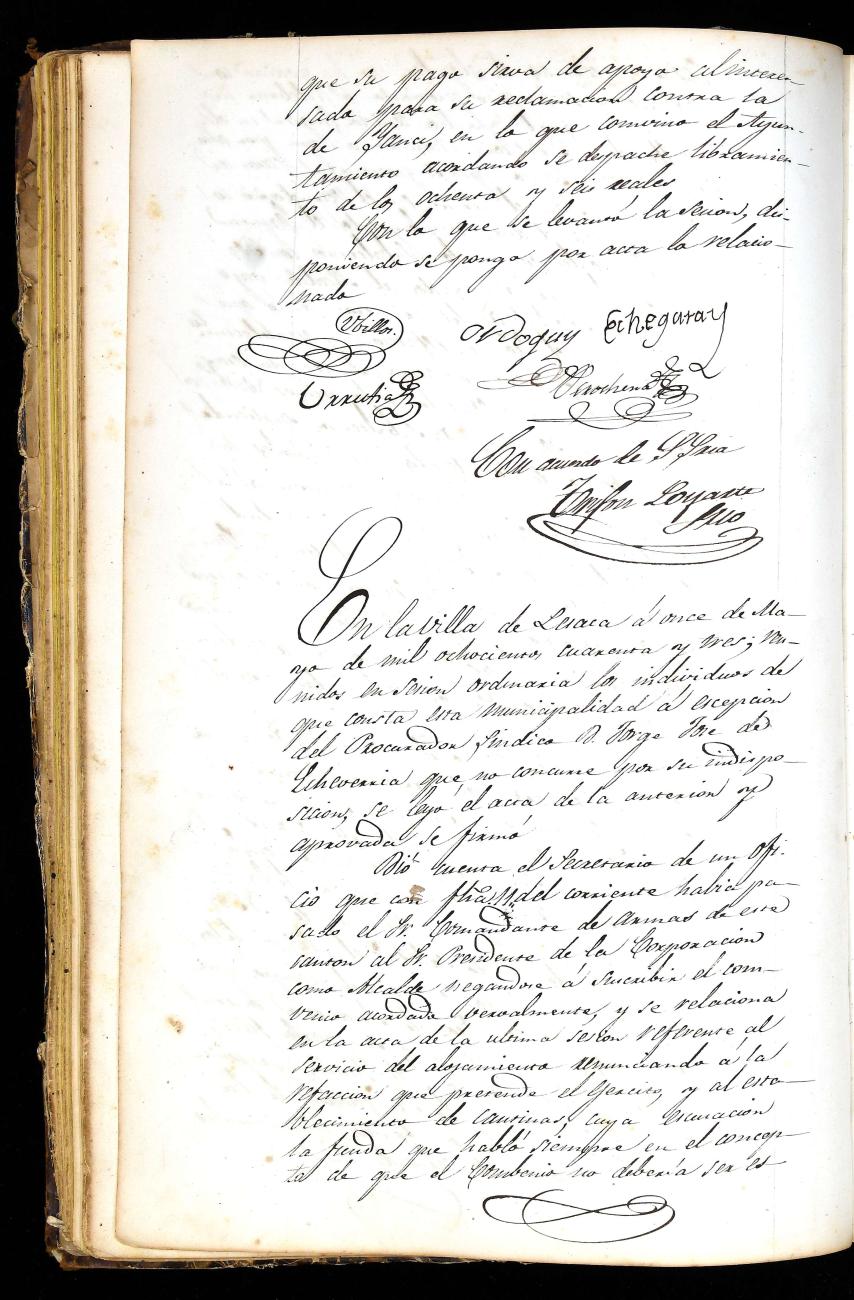 que su pago sirva de apoyo al interes
sado para su reclamacion contra la
de Yanci, en lo que convino el Ayun-
tamiento acordando se despache libramien-
to de los ochenta y seis reales
Con lo que se levantó la sesion, dis-
poniendo se ponga por acta lo relacio-
nado
Ubillos. Ordoquy Echegaray
Urrutia Perochena
Con acuerdo de S. Sria
Trifon Loyarte
Srio
En la villa de Lesaca á once de Ma-
yo de mil ochocientos cuarenta y tres; reu-
nidos en sesion ordinaria los individuos de
que consta esta municipalidad á escepcion
del Procurador Sindico D. Jorge Jose de
Echeverria que no concurre por su indispo-
sicion, se leyó el acta de la anterior y
aprovada se firmó
Dió cuenta el Secretario de un Ofi-
cio que con fha del corriente habia pa-
sado el Sr. Comandante de armas de este
canton al Sr. Presidente de la Corporacion
como Alcalde negandose á suscribir el con-
venio acordado vervalmente, y se relaciona
en la acta de la ultima sesion referente al
servicio del alojamiento renunciando á la
refaccion que pretende el Ejercito, y al esta-
blecimiento de cantinas, cuya escusacion
la funda que habló siempre en el concep-
to de que el Combenio no deberia ser es